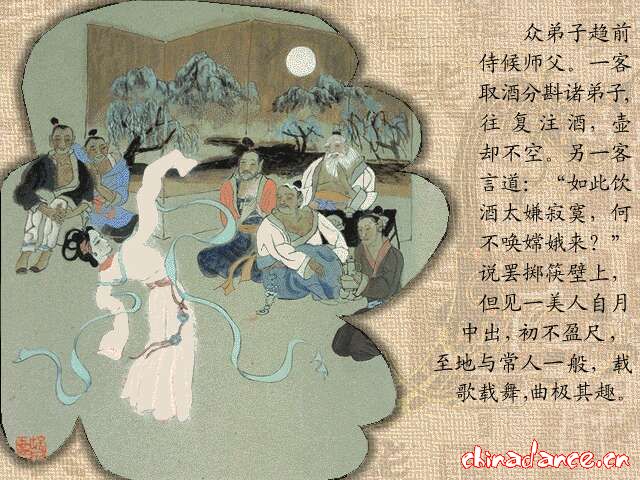 众弟子趋前
侍候师父。一客
取酒分斟诸弟子,
往复注酒，壶
却不空。另一客
言道：“如此饮
酒太嫌寂寞，何
不唤嫦娥来？”
说罢掷筷壁上，
但见一美人自月
中出，初不盈尺，
至地与常人一般，载
歌载舞,曲极其趣。
chinadance.cn